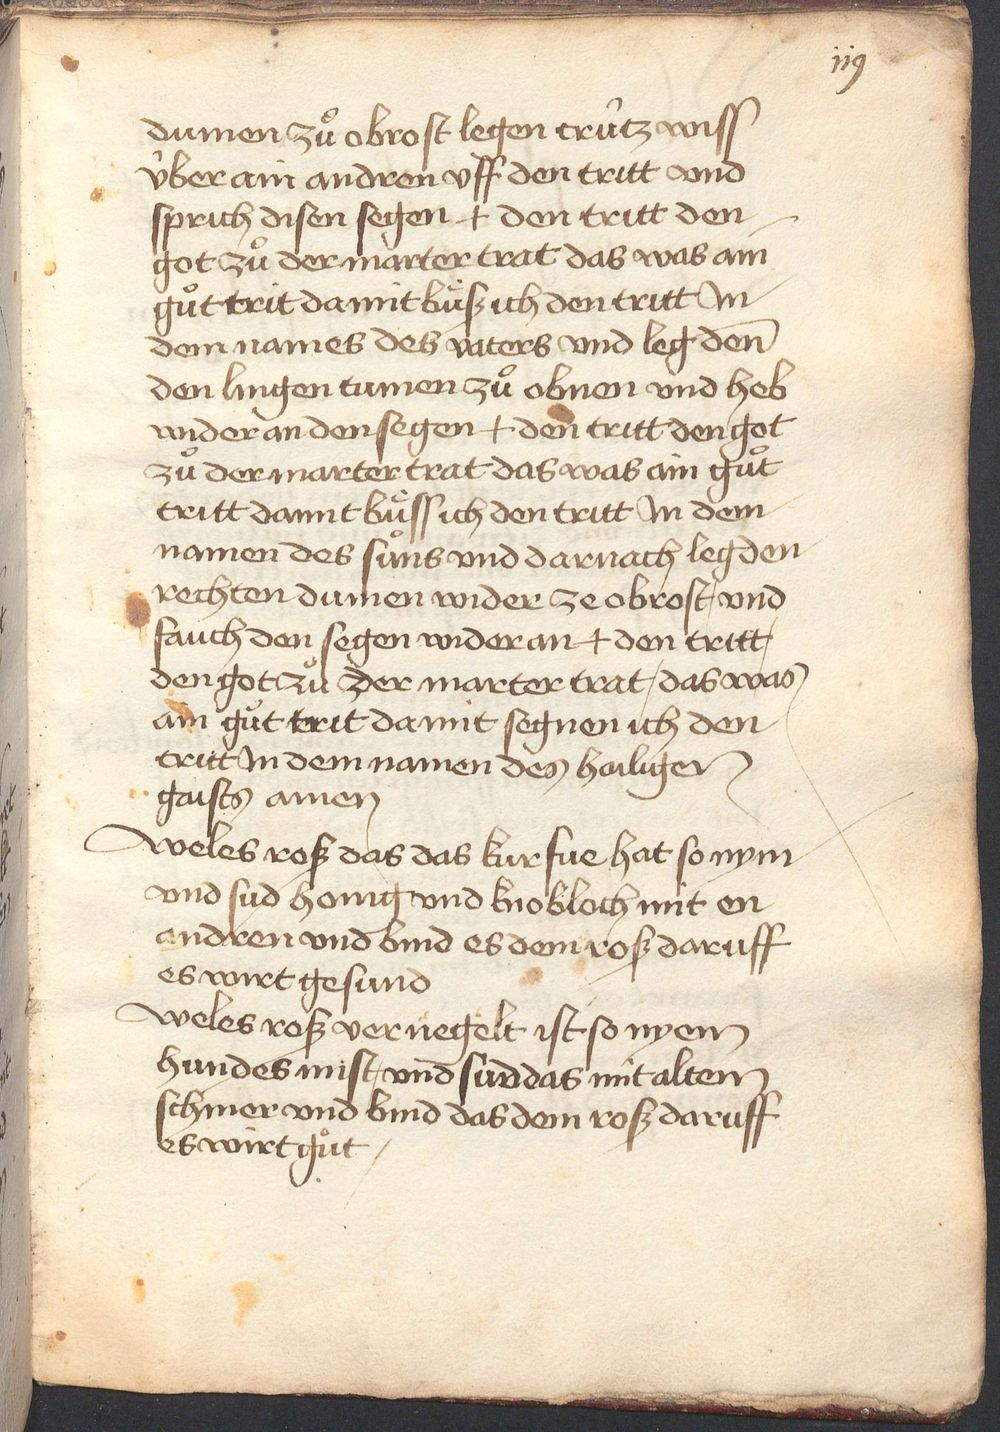 119
dumen zuͦ obrost legen crútz wiss
v́ber ain andren vff den tritt vnd
sprich disen segen + den tritt den
got zuͦ der marter trat das was ain
guͦt trit da mit buͤß ich den tritt In
dem names des vaters vnd leg den̄
den lingen tumen zuͦ obnen vnd heb
wider an den segen + den tritt den got
zuͦ der marter trat das was ain guͦt
tritt damit buͤss ich den tritt In dem
namen des suͦns vnd darnach leg den
rechten dumen wider ze obrost / vnd
fauch den segen wider an + den tritt /
den got zuͦ der marter trat / das was
ain guͦt trit da mit segnen ich den
tritt In dem namen des hailigen
gaists amen
weles roß das das kur fue hat so nym
vnd sud honig vnd knobloch mit en
andren vnd bind es dem roß daruff
es wirt gesund
weles roß vernegelt ist so nyem
hundes mist / vnd sud das mit altem
schmer vnd bind das dem roß daruff
es wirt guͦt /